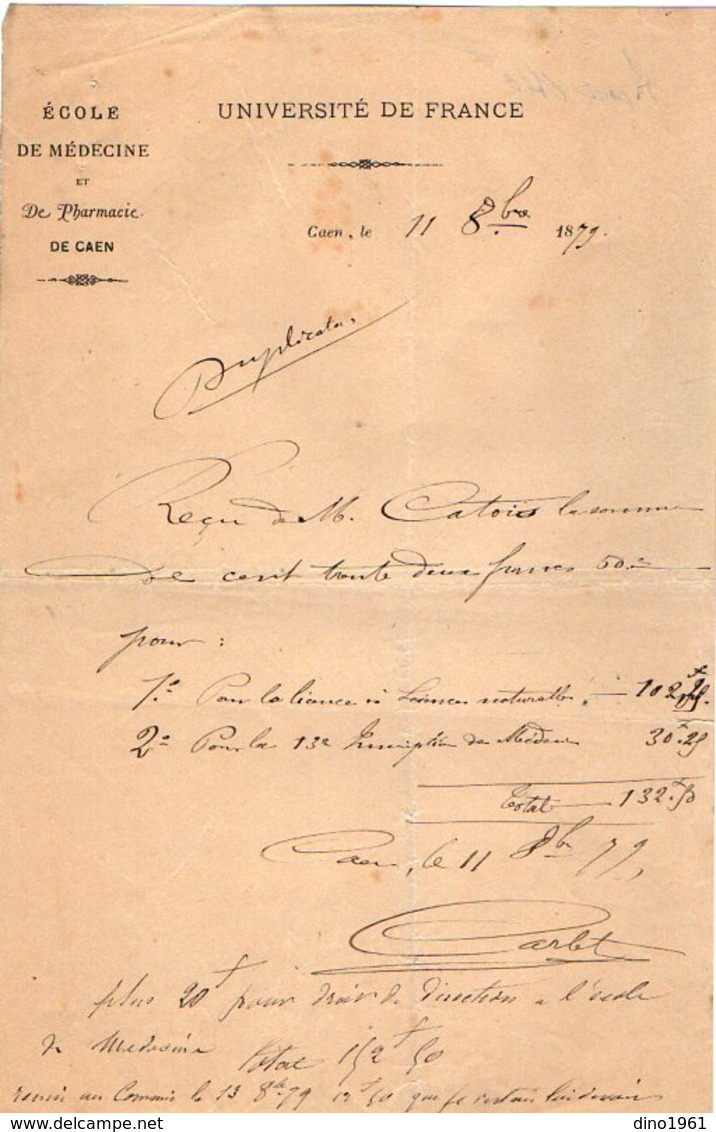 ÉCOLE
DE MÉDECINE
ET
De Pharmacie
DE CAEN
UNIVERSITÉ DE FRANCE
Caen, le 11 8.bre 1879.
Duplicata,
Reçu de M. Catois la somme
De cent trente deux francs 50.c
pour :
1.o Pour la licence ès sciences naturelles. 102f,25.
2o Pour la 13e Inscription de Médecine 30f.25
Total 132f.50
Caen, le 11 8b 79,
Carlet
plus 20f pour droit de direction a l'école
de Medecine total 152f 50
remis au Commis le 13 8b 79 12f 50 que je restais lui devoir
delcampe.net
dino1961